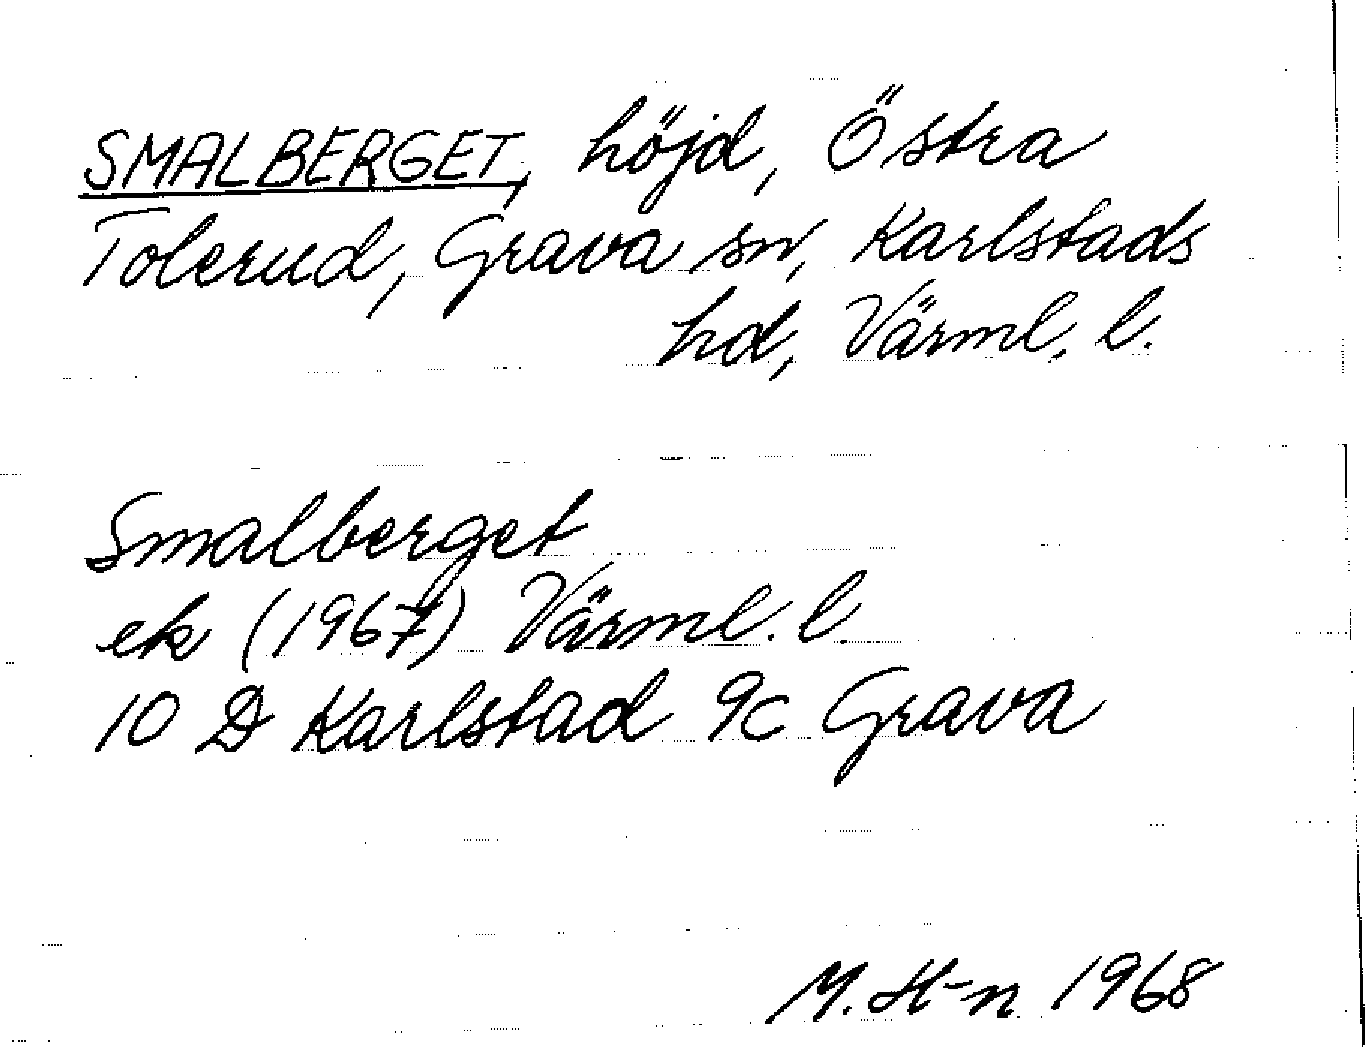 SMALBERGET, höjd, Östra
Tolerud, Grava sn, Karlstads
hd, Värml. l.
Smalberget
ek (1967) Värml. l
10 D Karlstad 9c Grava
M. H-n 1968